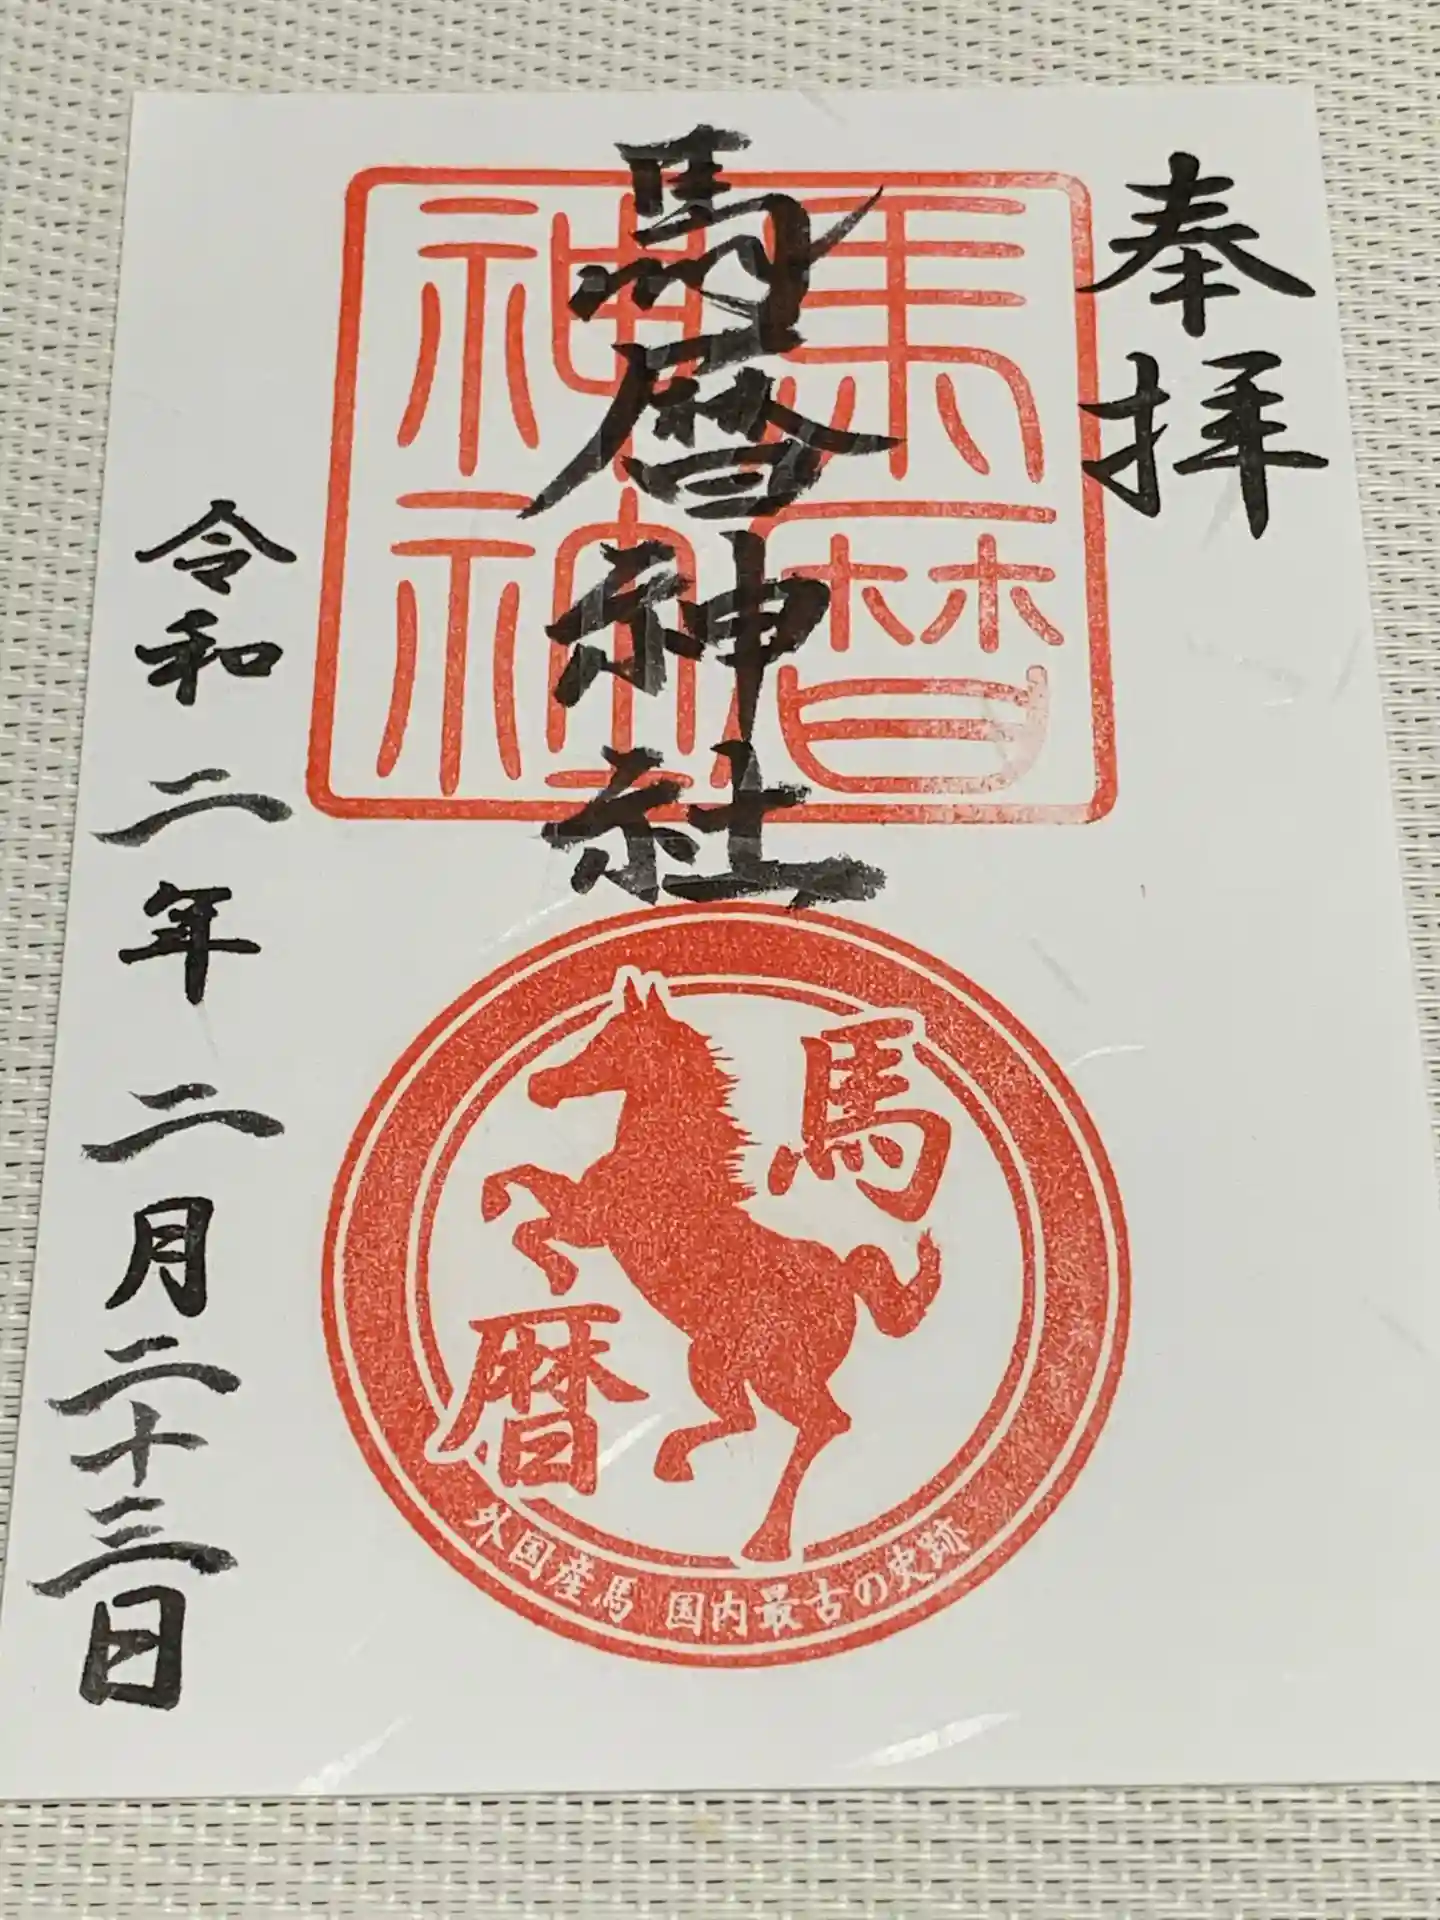 奉拝
馬暦神社
馬暦
神社
馬
暦
外国産馬 国内最古の史跡
令和二年二月二十三日